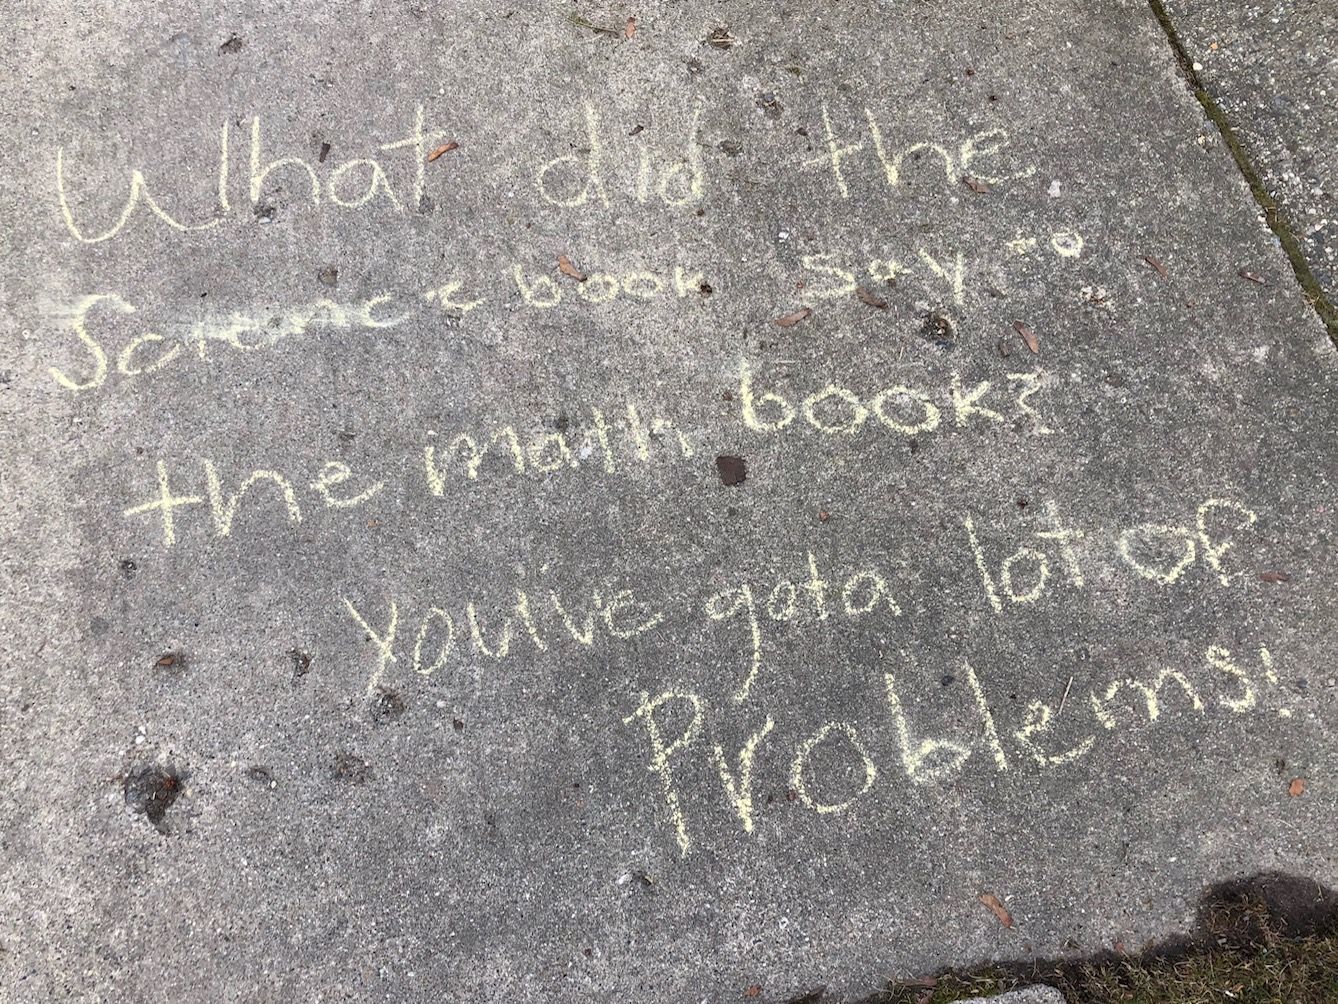 What did the
Science book say to
the math book?
You've gota lot of
Problems!